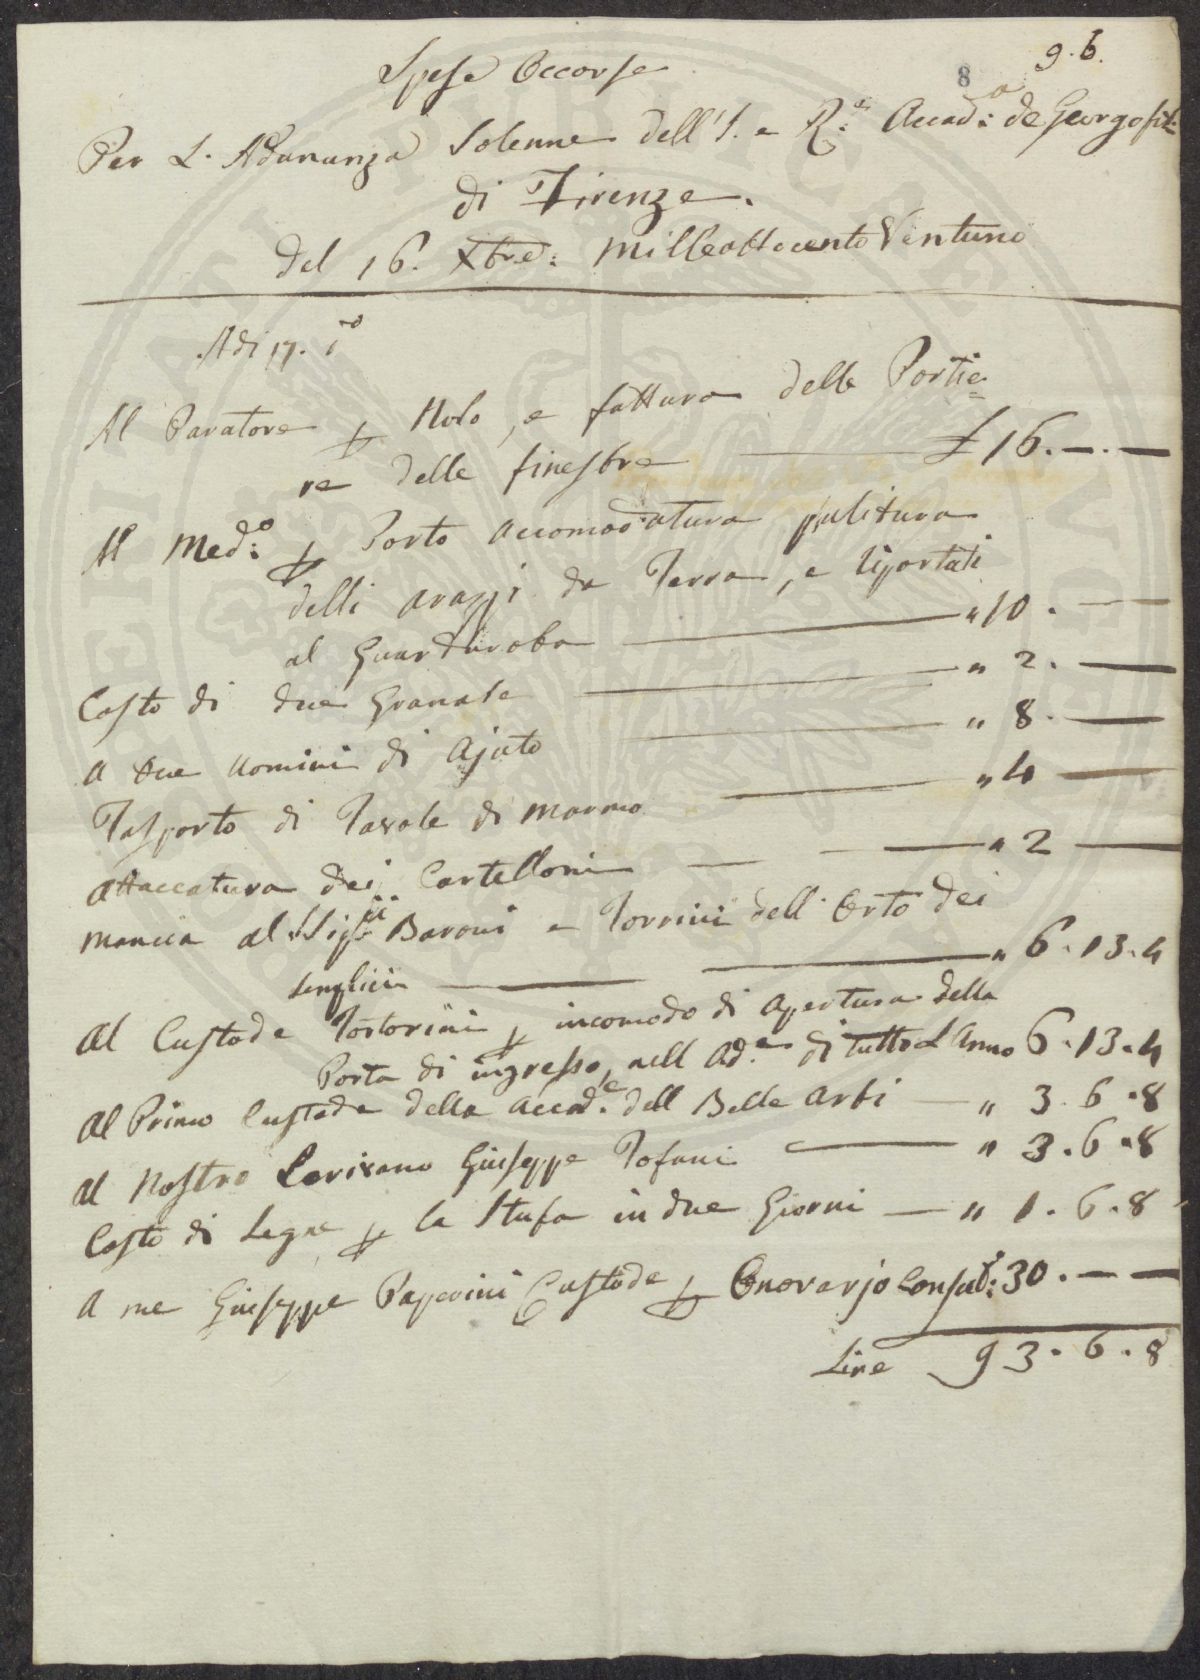 9. 6.
8
Spese Occorse
Per L. Adunanza Solenne dell'I. e R.e Accad:a de Georgofili
di Firenze.
del 16. Xbre: Milleottocento Ventuno
Adi 17. do
Al Paratore p Nolo, e fattura delle Portie=
re delle finestre £ 16. — . —
Al Med:o p Porto accomodatura pulitura
delli arazzi da Terra, e riportati
al Guardaroba " 10 . —
Costo di due Granate " 2 . —
A due uomini di Ajuto " 8 . —
Trasporto di Tavole di Marmo " 4 —
Attaccatura dei Cartelloni " 2 —
Mancia al Sigri Baroni e Torrini dell' Orto dei
Semplici " 6 . 13 . 4
Al Custode Tortorini p incomodo di apertura della
Porta di ingresso, nell Ad.e di tutto L Anno 6 . 13 . 4
Al Primo Custode della Accad.e dell Belle Arti — " 3 . 6 . 8
Al Nostro Scrivano Giuseppe Tofani " 3 . 6 . 8
Costo di Legne p la Stufa in due Giorni — " 1 . 6 . 8
A me Giuseppe Paperini Custode p Onorarjo Consuet: 30 . — —
Lire 93 . 6 . 8